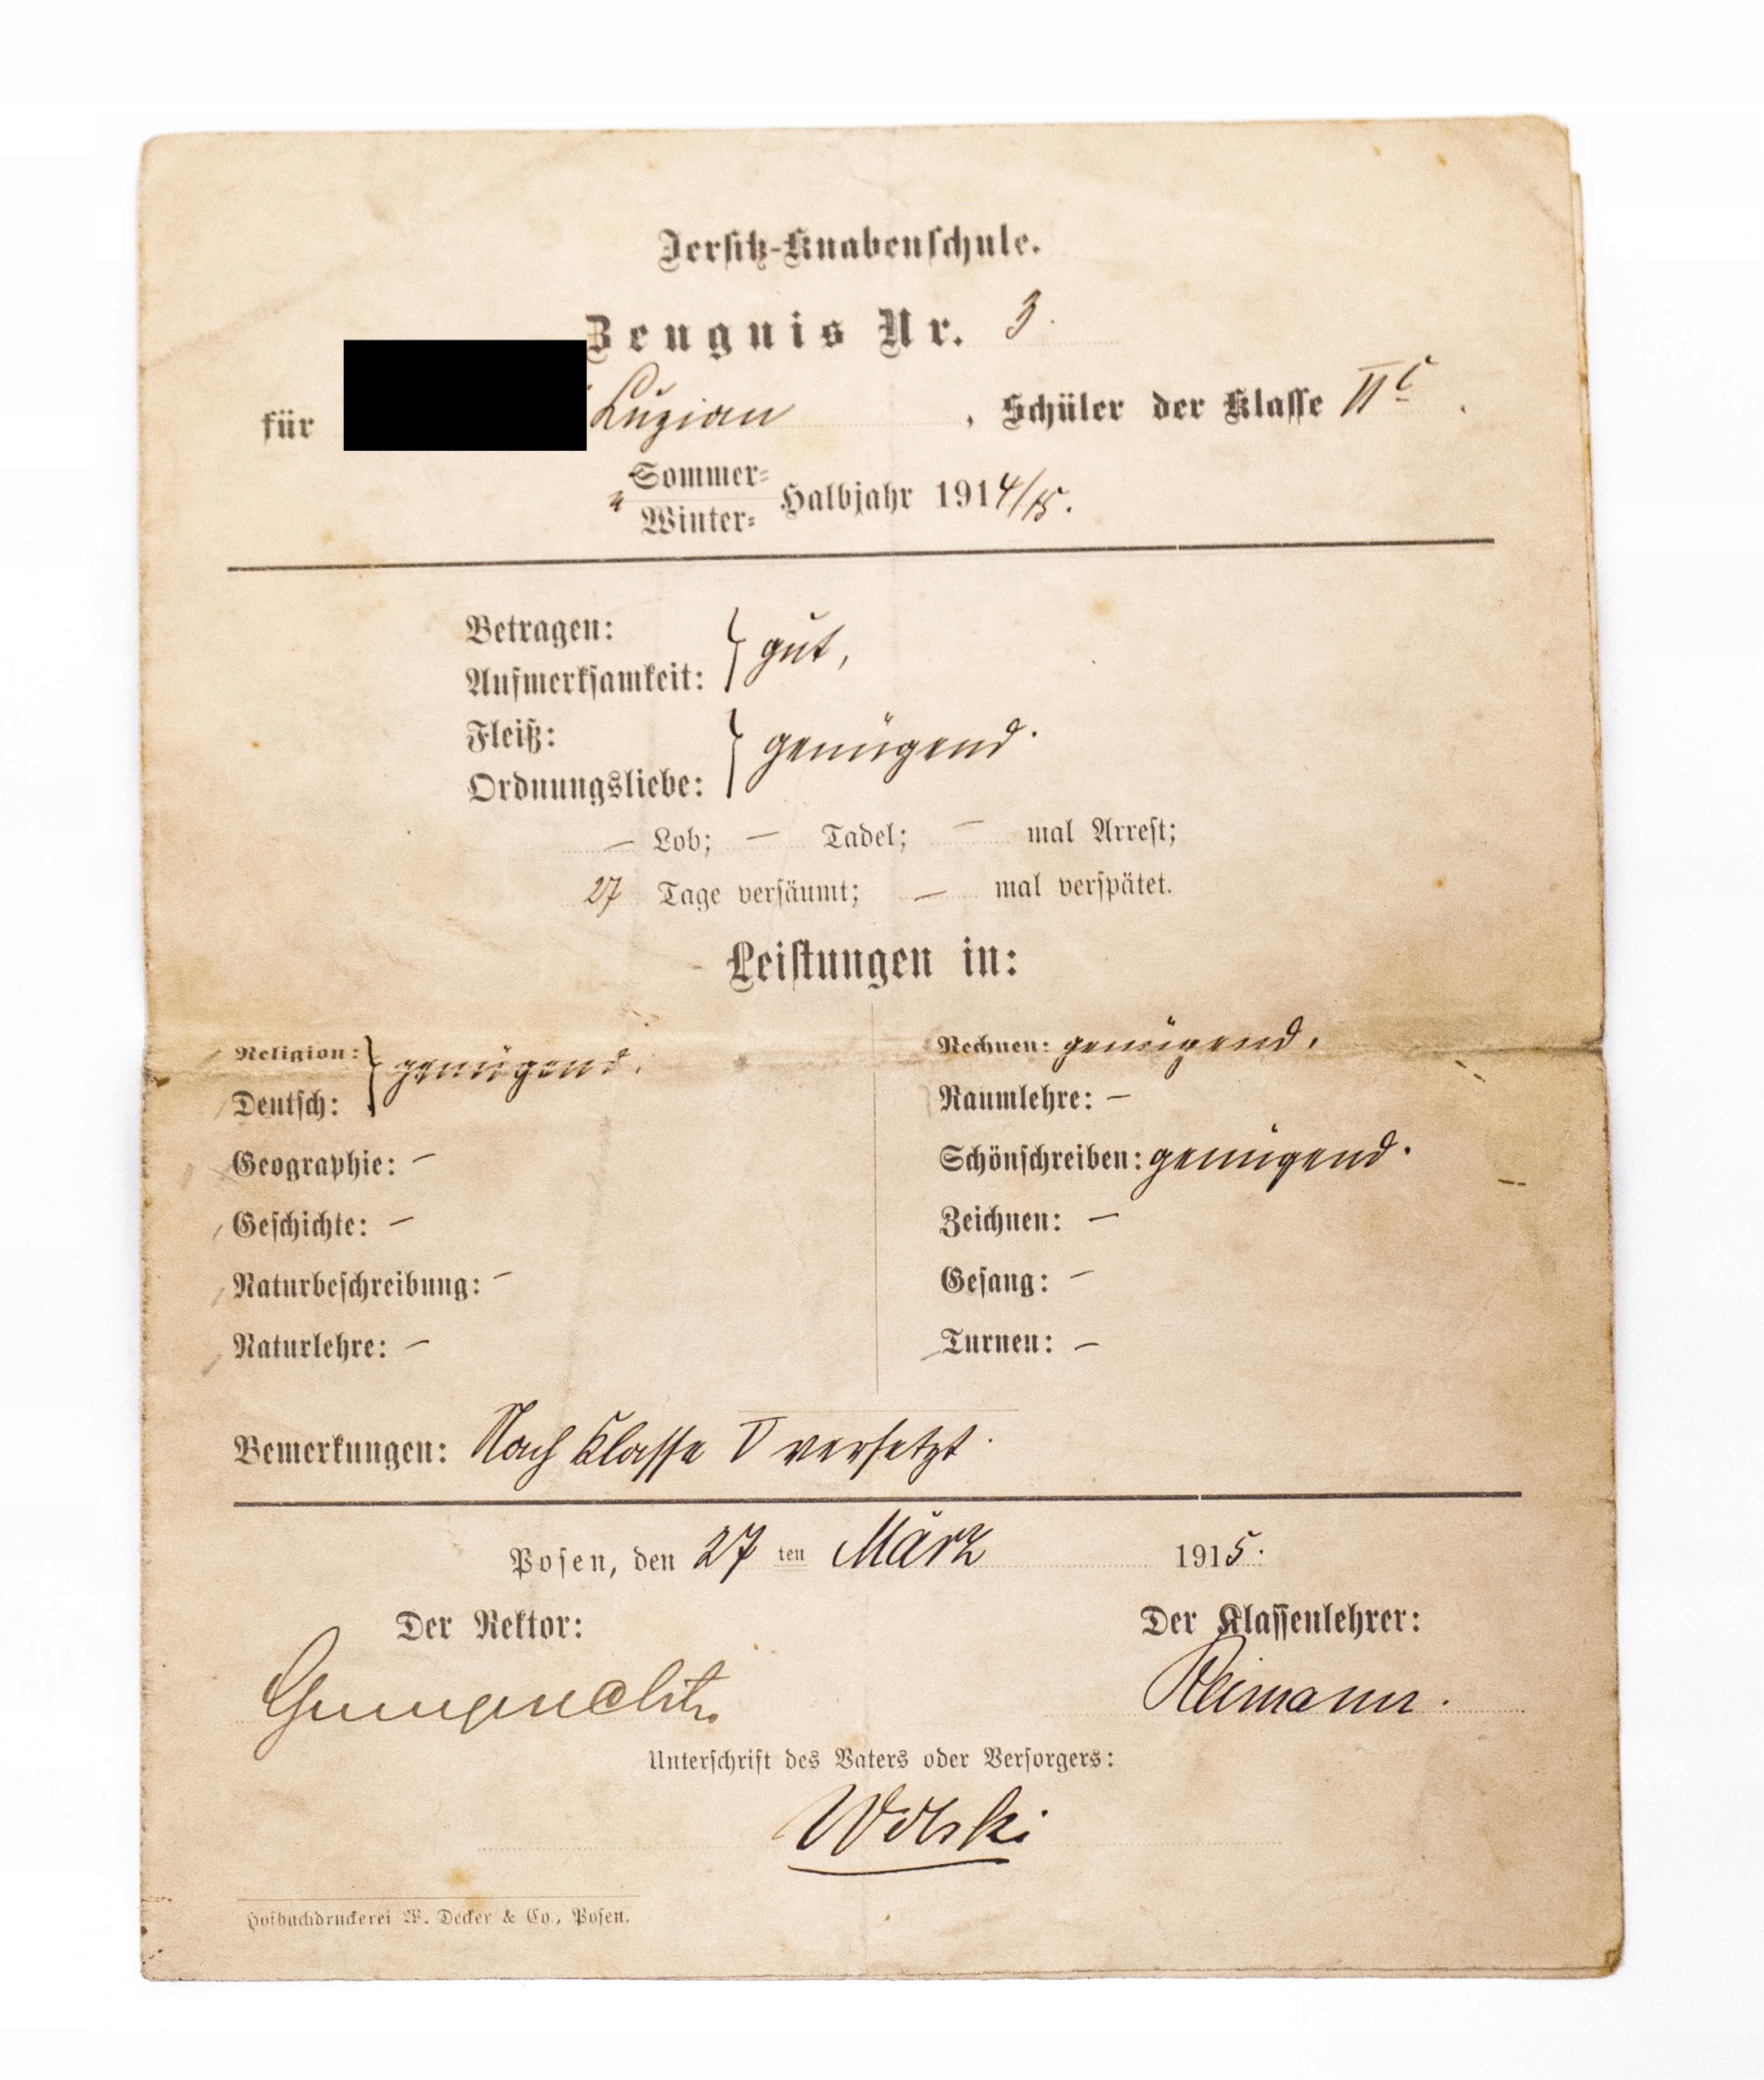 Jersitz-Knabenschule.
Zeugnis Nr. 3.
für Luzian, Schüler der Klasse
Sommer-
Winter- Halbjahr 1914/15.
Betragen:
Aufmerksamkeit: } gut,
Fleiß:
Ordnungsliebe: } genügend.
— Lob; — Tadel; — mal Arrest;
27 Tage versäumt; — mal verspätet.
Leistungen in:
Religion:
Deutsch: } genügend.
Geographie: —
Geschichte: —
Naturbeschreibung: —
Naturlehre: —
Rechnen: genügend.
Raumlehre: —
Schönschreiben: genügend.
Zeichnen: —
Gesang: —
Turnen: —
Bemerkungen: Nach Klasse V versetzt.
Posen, den 27 ten März 1915.
Der Rektor:
Der Klassenlehrer:
Reimann.
Unterschrift des Vaters oder Versorgers:
Wolski
Hofbuchdruckerei W. Decker & Co., Posen.